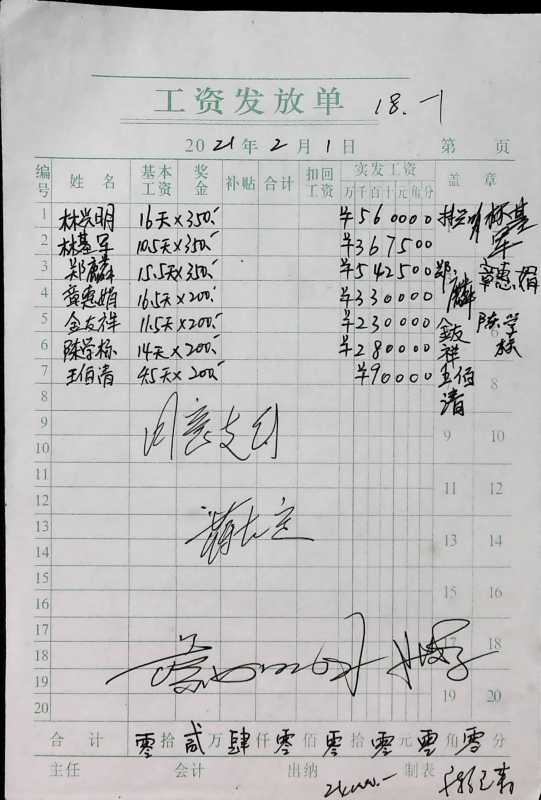 工资发放单 18.
2021年2月1日 第 页
编号 姓名 基本工资 奖金 补贴 合计 扣回工资 实发工资 盖章
万千百十元角分
1 林兴明 16天×350.- ¥560000 林兴明 林基军
2 林基军 10.5天×350.- ¥367500
3 郑麟 15.5天×350.- ¥542500 郑麟 章惠娟
4 章惠娟 16.5天×200.- ¥330000
5 金友祥 11.5天×200.- ¥230000 金友祥 陈学标
6 陈学标 14天×200.- ¥280000 6
7 王伯清 4.5天×200.- ¥90000 王伯清
8 8
9 同意支付 9 10
10
11 11 12
12
13 13 14
14
15 15 16
16
17 17 18
18
19 19 20
20
合计 零拾贰万肆仟零佰零拾零元零角零分
主任 会计 出纳 制表